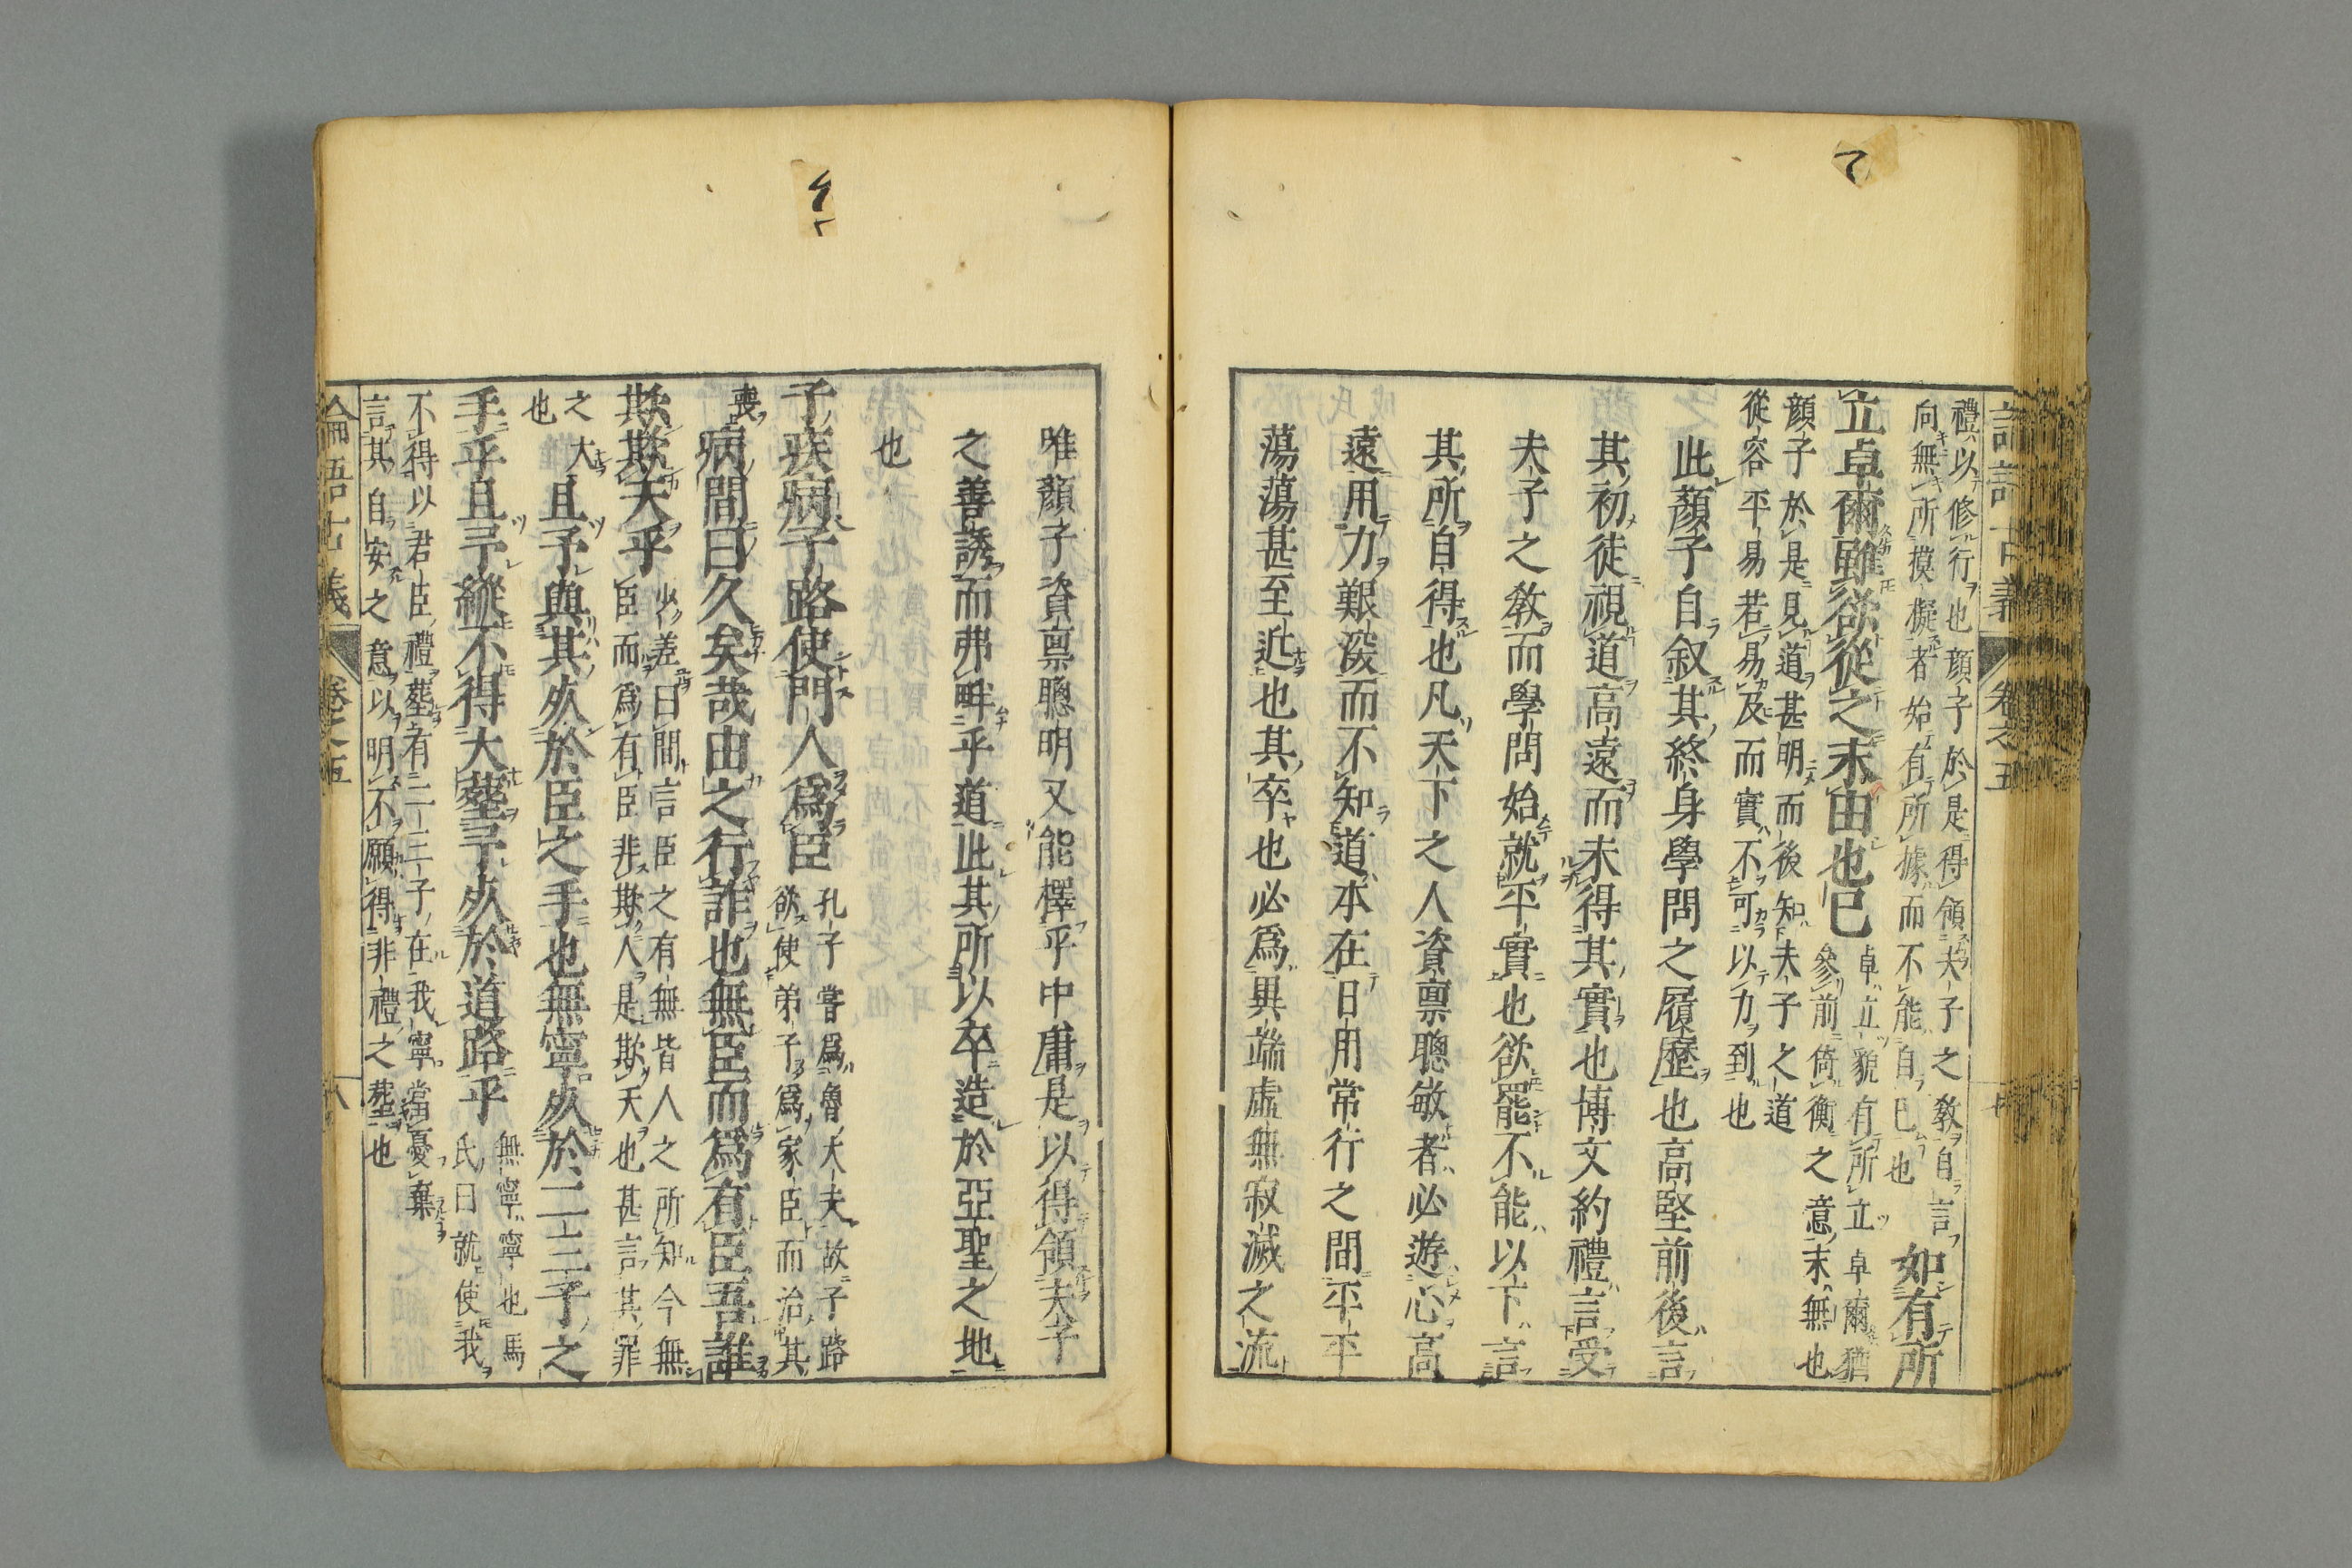 て
卷之五
禮以修行也顔子於是得領夫子之敎自言
向無所摸擬者始有所據而不能自已也
如有所
立卓爾雖欲從之末由也已
卓立貌有所立卓爾猶
參前倚衡之意末無也
顔子於是見道甚明而後知夫子之道
從容平易若易及而實不可以力到也
此顔子自叙其終身學問之履歷也高堅前後言
其初徒視道高遠而未得其實也博文約禮言受
夫子之敎而學問始就平實也欲罷不能以下言
其所自得也凡天下之人資禀聰敏者必遊心高
遠用力艱深而不知道本在日用常行之間平平
蕩蕩甚至近也其卒也必爲異端虛無寂滅之流
唯顔子資禀聰明又能擇乎中庸是以得領夫子
之善誘而弗畔乎道此其所以卒造於亞聖之地
也
子疾病子路使門人爲臣
孔子嘗爲魯大夫故子路
欲使弟子爲家臣而治其
喪
病間曰久矣哉由之行詐也無臣而爲有臣吾誰
欺欺天乎
少差曰間言臣之有無皆人之所知今無
臣而爲有臣非欺人是欺天也甚言其罪
之大
也
且予與其死於臣之手也無寧死於二三子之
手乎且予縱不得大葬予死於道路乎
無寧寧也馬
氏曰就使我
不得以君臣禮葬有二三子在我寧當憂棄
言其自安之意以明不願得非禮之葬也
論語古義
卷之五
八